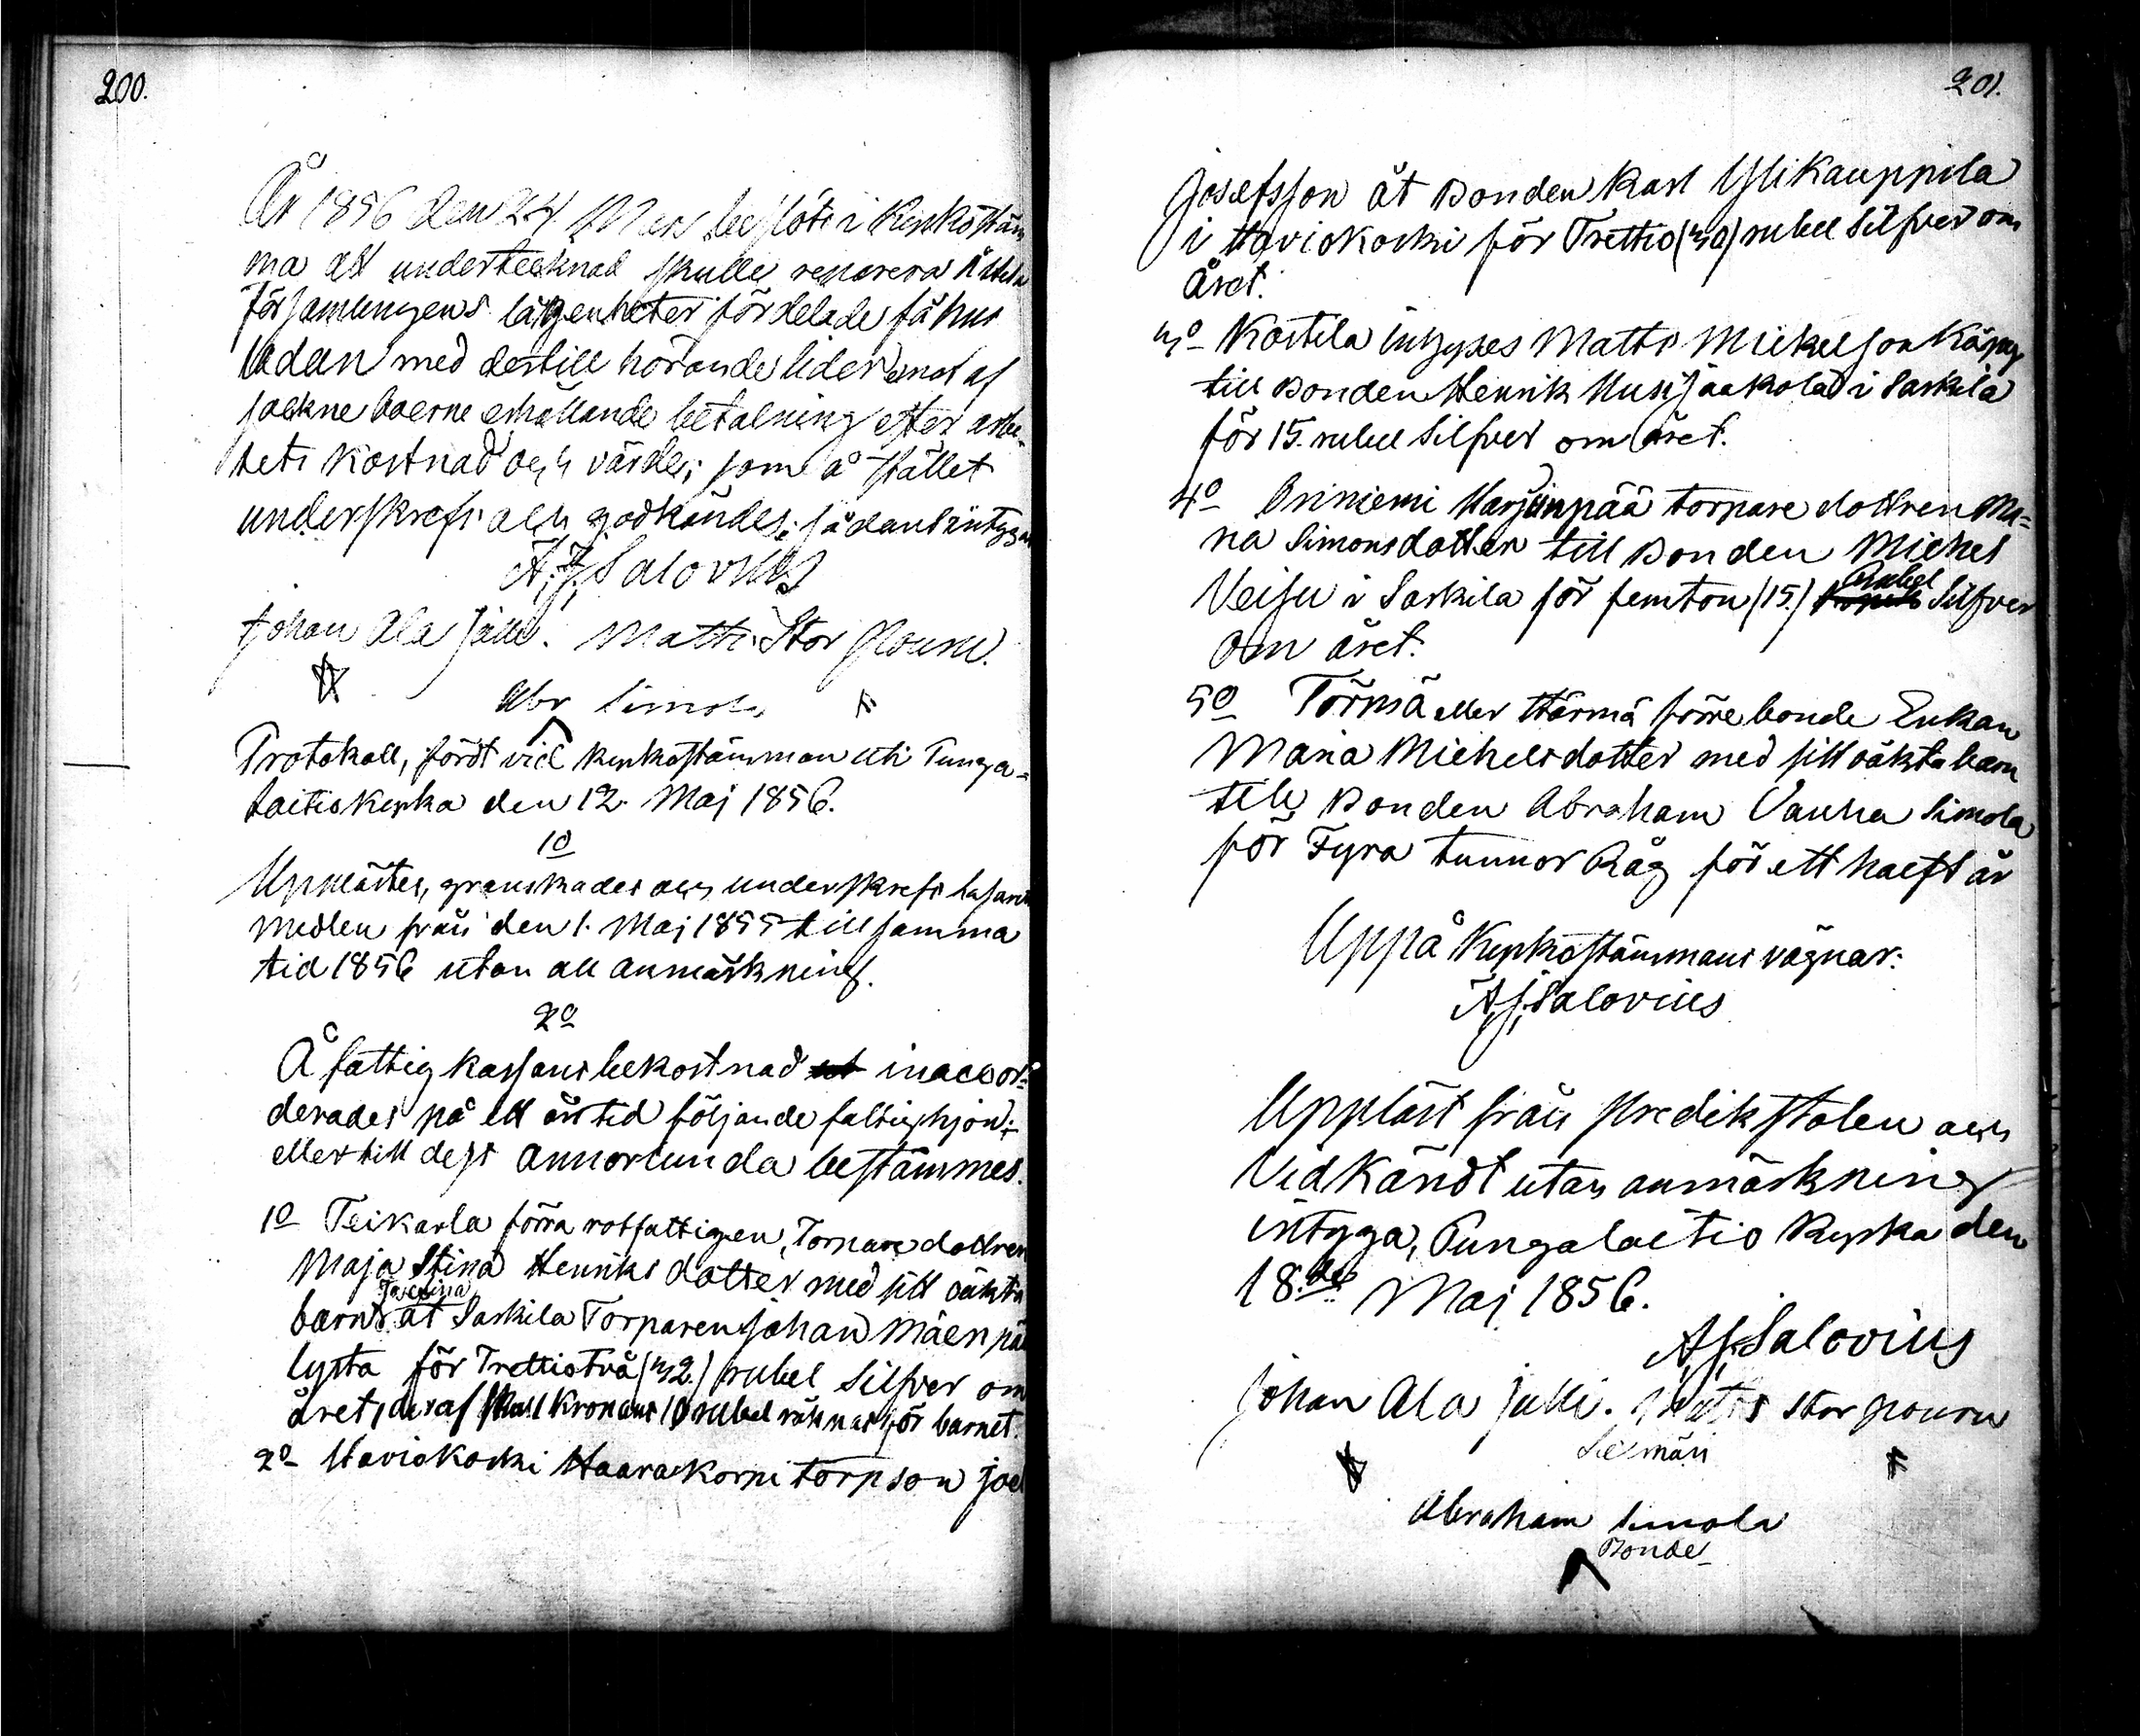 200.
År 1856 den 24 Mars beslöts i Kyrkostäm
ma att undertecknad skulle reparera
Församlingens lägenheter fördelade fähus
ladan med dertill hörande lider emot af
sockne boerne erhållande betalning efter arbe-
tets kostnad och värde; som å stället
underskrefs och godkändes; sådant intygar
A. J. Salovius
Johan Ala Julli. Matts Stor Pouru.
Abr Simola
Protokoll, fördt vid kyrkostämman uti Punga-
laitio kyrka den 12. Maj 1856.
1o
Upplästes, granskades och underskrefs
medlen från den 1. Maj 1855 till samma
tid 1856 utan all anmärkning.
2o
Å fattigkassans bekostnad inaccor-
derades på ett års tid följande fattighjon;
eller till dess annorlunda bestämmes.
1o Teikarla förra rotfattigen, Torpare dottren
Maja Stina Henriks dotter med sitt oäkta
barn åt Saskila Torparen Johan Mäenpää
lysta för Trettiotvå (32.) rubel Silfver om
året, deraf skall Kronans 10 rubel räknas för barnet.
2o Haviokoski Haarakorpi torpson Joel
201.
Josefsson åt Bonden Karl Ylikauppila
i Haviokoski för Trettio (30) rubel Silfver om
Året.
3o Kostila inhyses Matts Mickelson
till Bonden Henrik Uusijaakola i Saskila
för 15. rubel Silfver om året.
4o Oriniemi Harjunpää torpare dottren Mi-
na Simonsdotter till Bonden Michel
Veisu i Saskila för femton (15.) Rubel Silfver
om året.
5o Törmä eller Härmä förre bonde Enkan
Maria Michelsdotter med sitt oäkta barn
till Bonden Abraham Vanha Simola
för Fyra tunnor Råg för ett halft år
Uppå Kyrkostämmans vägnar:
A. J. Salovius
Uppläst från predikstolen och
Vidkändt utan anmärkning
intyga, Pungalaitio Kyrka den
18.de Maj 1856.
A. J. Salovius
Johan Ala Julli. Matts Stor Pouru
Abraham Simola
Bonde